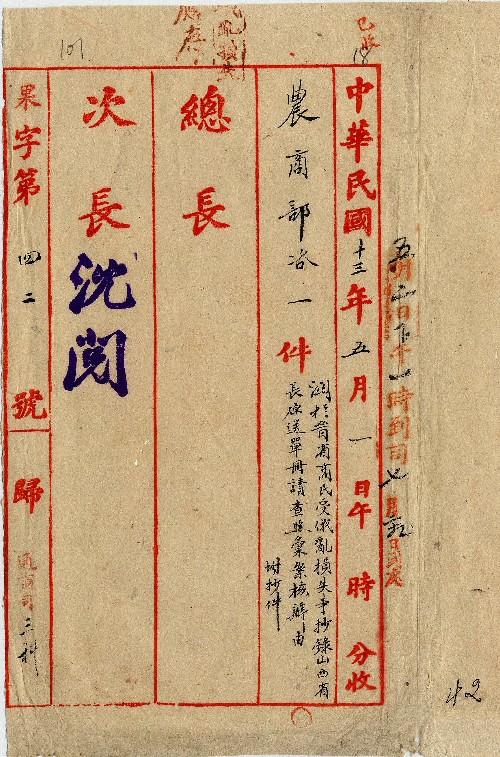 已收
18
中華民國十三年五月一日午 時 分收
五月二日下午一時到司
農商部咨一件
關於晉省商民受俄亂損失事抄錄山西省
長原送單冊請查照彙案核辦由
附抄件
總長
次長 沈閱
果字第四二號歸通商司三科
101
42